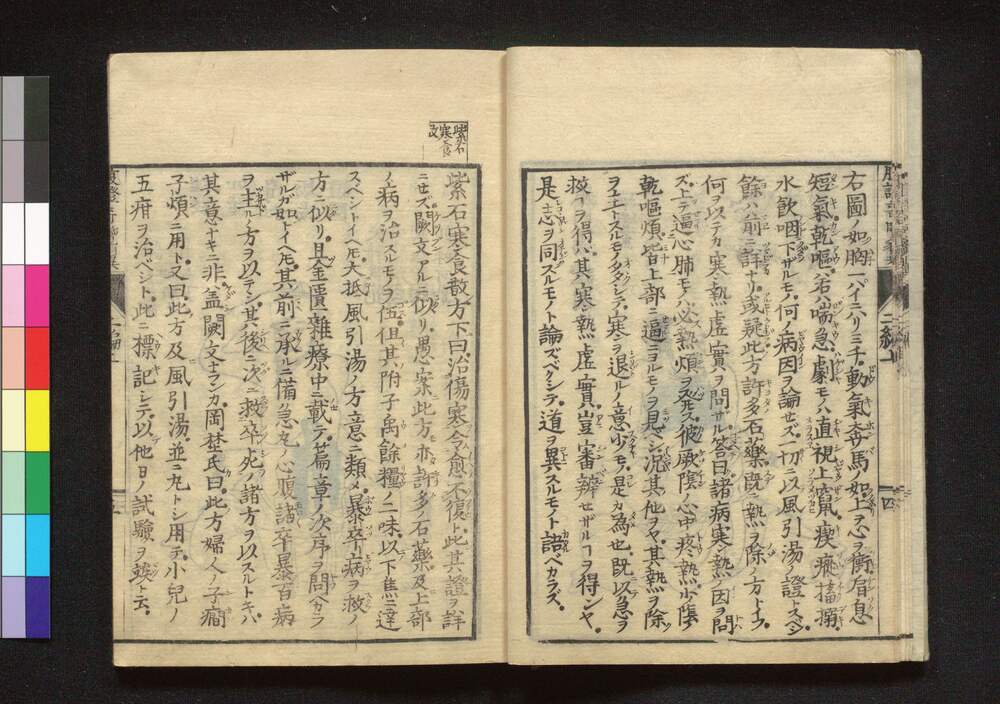 右圖ノ如胸一パイニ六リミチ動氣奔馬ノ如上テ心ヲ衝肩息
短氣乾嘔若ハ喘急劇モノハ直視上竄瘈瘲搐搦
水飲咽下ザルモノ何ノ病因ヲ論セズ一切ニ以風引湯ノ證トスベシ
餘ハ前ニ詳ナリ或疑此方許多石藥既ニ熱ヲ除ノ方トイフ
何ヲ以テカ寒熱虚實ヲ問ザル答曰諸病寒ニ熱ニ因ヲ問
ズ上テ逼心肺モノハ必熱煩ヲ發ス彼厥陰ノ心中疼熱少陰ノ
乾嘔煩皆上部ニ逼ニヨルモノヲ見ベシ況其他ヲヤ其熱ヲ除ツ
ヲ主トスルモノ多シテ寒ヲ退ルノ意少モノ是カ為也既以急ヲ
救フヿヲ得バ其寒熱虚實豈審辨セザルヿヲ得ンヤ
是志ヲ同スルモノト論ズベクシテ道ヲ異スルモノト語ベカラズ
二編上
四
紫石寒食散
紫石寒食散方下曰治傷寒令愈不復ト此其證ヲ詳
ニセズ闕文アルニ似リ愚案此方亦許多ノ石藥及上部
ノ病ヲ治スルモノヲ伍但其附子禹餘糧ノ二味以下焦ニ達
スベシトイヘ𪜈大抵風引湯ノ方意ニ類メ暴卒病ヲ救ノ
方ニ似リ且金匱雜療中ニ載テ扁章ノ次序ヲ問ベカラ
ザルガ如トイヘ𪜈其前ニ承ルニ備急丸ノ心腹諸卒暴百病
ヲ主ルノ方ヲ以テシ其後ニ次ニ救卒死ノ諸方ヲ以スルトキハ
其意ナキニ非盖闕文ナランカ岡埜氏曰此方婦人ノ子癎
子煩ニ用ト又曰此方及風引湯並ニ丸トシ用テ小兒ノ
五疳ヲ治ベシト此ニ標記シテ以他日ノ試驗ヲ竢ト云